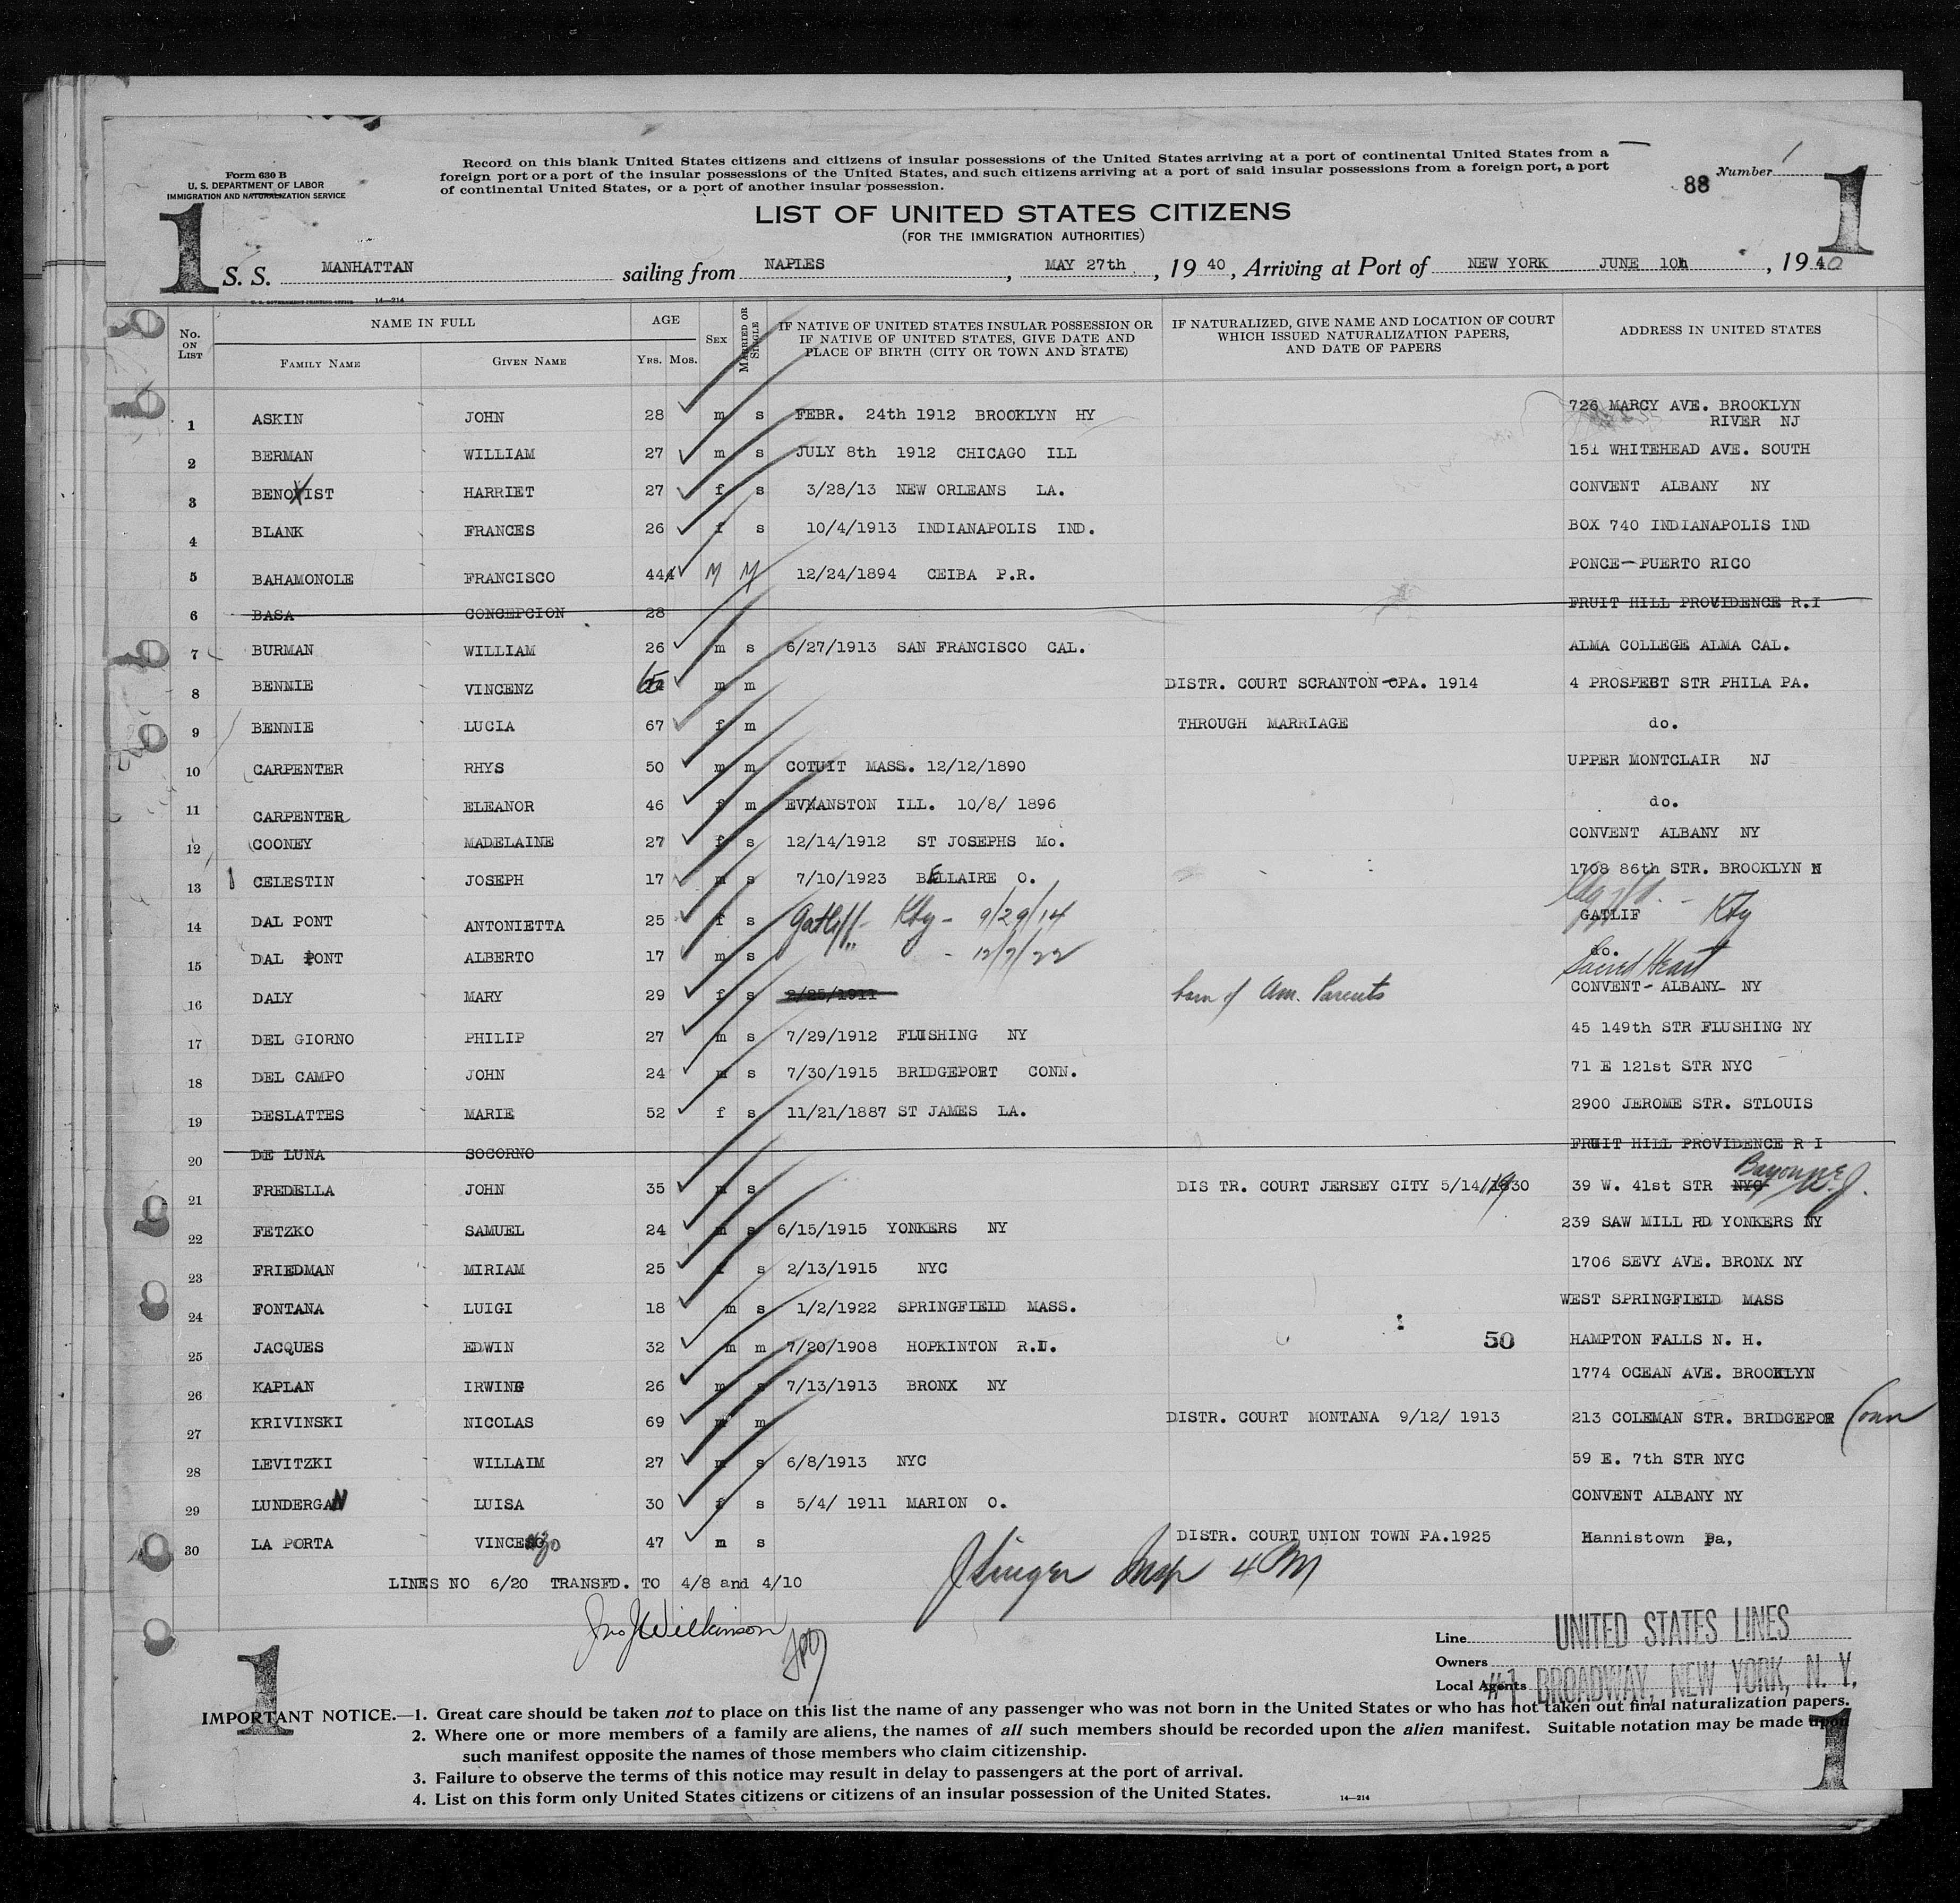 Form 630 B
U. S. DEPARTMENT OF LABOR
IMMIGRATION AND NATURALIZATION SERVICE
Record on this blank United States citizens and citizens of insular possessions of the United States arriving at a port of continental United States from a
foreign port or a port of the insular possessions of the United States, and such citizens arriving at a port of said insular possessions from a foreign port, a port
of continental United States, or a port of another insular possession.
88 Number 1
1 1
LIST OF UNITED STATES CITIZENS
(FOR THE IMMIGRATION AUTHORITIES)
S. S. MANHATTAN sailing from NAPLES, MAY 27th, 1940, Arriving at Port of NEW YORK JUNE 10h, 1940
U. S. GOVERNMENT PRINTING OFFICE 14—214
No. ON LIST NAME IN FULL AGE SEX MARRIED OR SINGLE IF NATIVE OF UNITED STATES INSULAR POSSESSION OR IF NATIVE OF UNITED STATES, GIVE DATE AND PLACE OF BIRTH (CITY OR TOWN AND STATE) IF NATURALIZED, GIVE NAME AND LOCATION OF COURT WHICH ISSUED NATURALIZATION PAPERS, AND DATE OF PAPERS ADDRESS IN UNITED STATES
FAMILY NAME GIVEN NAME YRS. MOS.
1 ASKIN JOHN 28 m s FEBR. 24th 1912 BROOKLYN HY 726 MARCY AVE. BROOKLYN
RIVER NJ
2 BERMAN WILLIAM 27 m s JULY 8th 1912 CHICAGO ILL 151 WHITEHEAD AVE. SOUTH
3 BENOVIST HARRIET 27 f s 3/28/13 NEW ORLEANS LA. CONVENT ALBANY NY
4 BLANK FRANCES 26 f s 10/4/1913 INDIANAPOLIS IND. BOX 740 INDIANAPOLIS IND
5 BAHAMONOLE FRANCISCO 44 M M 12/24/1894 CEIBA P.R. PONCE-PUERTO RICO
6 BASA CONCEPCION 28 FRUIT HILL PROVIDENCE R.I
7 BURMAN WILLIAM 26 m s 6/27/1913 SAN FRANCISCO CAL. ALMA COLLEGE ALMA CAL.
8 BENNIE VINCENZ 65 m m DISTR. COURT SCRANTON PA. 1914 4 PROSPECT STR PHILA PA.
9 BENNIE LUCIA 67 f m THROUGH MARRIAGE do.
10 CARPENTER RHYS 50 m m COTUIT MASS. 12/12/1890 UPPER MONTCLAIR NJ
11 CARPENTER ELEANOR 46 f m EVANSTON ILL. 10/8/ 1896 do.
12 COONEY MADELAINE 27 f s 12/14/1912 ST JOSEPHS Mo. CONVENT ALBANY NY
13 CELESTIN JOSEPH 17 m s 7/10/1923 BELLAIRE O. 1708 86th STR. BROOKLYN N
14 DAL PONT ANTONIETTA 25 f s Gatliff- Kty - 9/29/14 GATLIF Kty
15 DAL PONT ALBERTO 17 m s " - 12/7/22 do.
Sacred Heart
16 DALY MARY 29 f s 2/25/1911 born of Am. Parents CONVENT- ALBANY- NY
17 DEL GIORNO PHILIP 27 m s 7/29/1912 FLUSHING NY 45 149th STR FLUSHING NY
18 DEL CAMPO JOHN 24 m s 7/30/1915 BRIDGEPORT CONN. 71 E 121st STR NYC
19 DESLATTES MARIE 52 f s 11/21/1887 ST JAMES LA. 2900 JEROME STR. STLOUIS
20 DE LUNA SOCORNO FRUIT HILL PROVIDENCE R I
21 FREDELLA JOHN 35 m s DIS TR. COURT JERSEY CITY 5/14/1930 39 W. 41st STR NYC Bayonne N.J.
22 FETZKO SAMUEL 24 m s 6/15/1915 YONKERS NY 239 SAW MILL RD YONKERS NY
23 FRIEDMAN MIRIAM 25 f s 2/13/1915 NYC 1706 SEVY AVE. BRONX NY
24 FONTANA LUIGI 18 m s 1/2/1922 SPRINGFIELD MASS. WEST SPRINGFIELD MASS
25 JACQUES EDWIN 32 m m 7/20/1908 HOPKINTON R.I. 50 HAMPTON FALLS N. H.
26 KAPLAN IRWING 26 m s 7/13/1913 BRONX NY 1774 OCEAN AVE. BROOKLYN
27 KRIVINSKI NICOLAS 69 m m DISTR. COURT MONTANA 9/12/ 1913 213 COLEMAN STR. BRIDGEPOR Conn
28 LEVITZKI WILLAIM 27 m s 6/8/1913 NYC 59 E. 7th STR NYC
29 LUNDERGAN LUISA 30 f s 5/4/ 1911 MARION O. CONVENT ALBANY NY
30 LA PORTA VINCENZO 47 m s DISTR. COURT UNION TOWN PA.1925 Hannistown Pa,
LINES NO 6/20 TRANSFD. TO 4/8 and 4/10
J Singer Insp 4 PM
Jno J Wilkinson
Line UNITED STATES LINES
Owners
Local Agents #1 BROADWAY, NEW YORK, N. Y.
1 1
IMPORTANT NOTICE.—1. Great care should be taken not to place on this list the name of any passenger who was not born in the United States or who has not taken out final naturalization papers.
2. Where one or more members of a family are aliens, the names of all such members should be recorded upon the alien manifest. Suitable notation may be made upon
such manifest opposite the names of those members who claim citizenship.
3. Failure to observe the terms of this notice may result in delay to passengers at the port of arrival.
4. List on this form only United States citizens or citizens of an insular possession of the United States.
14—214